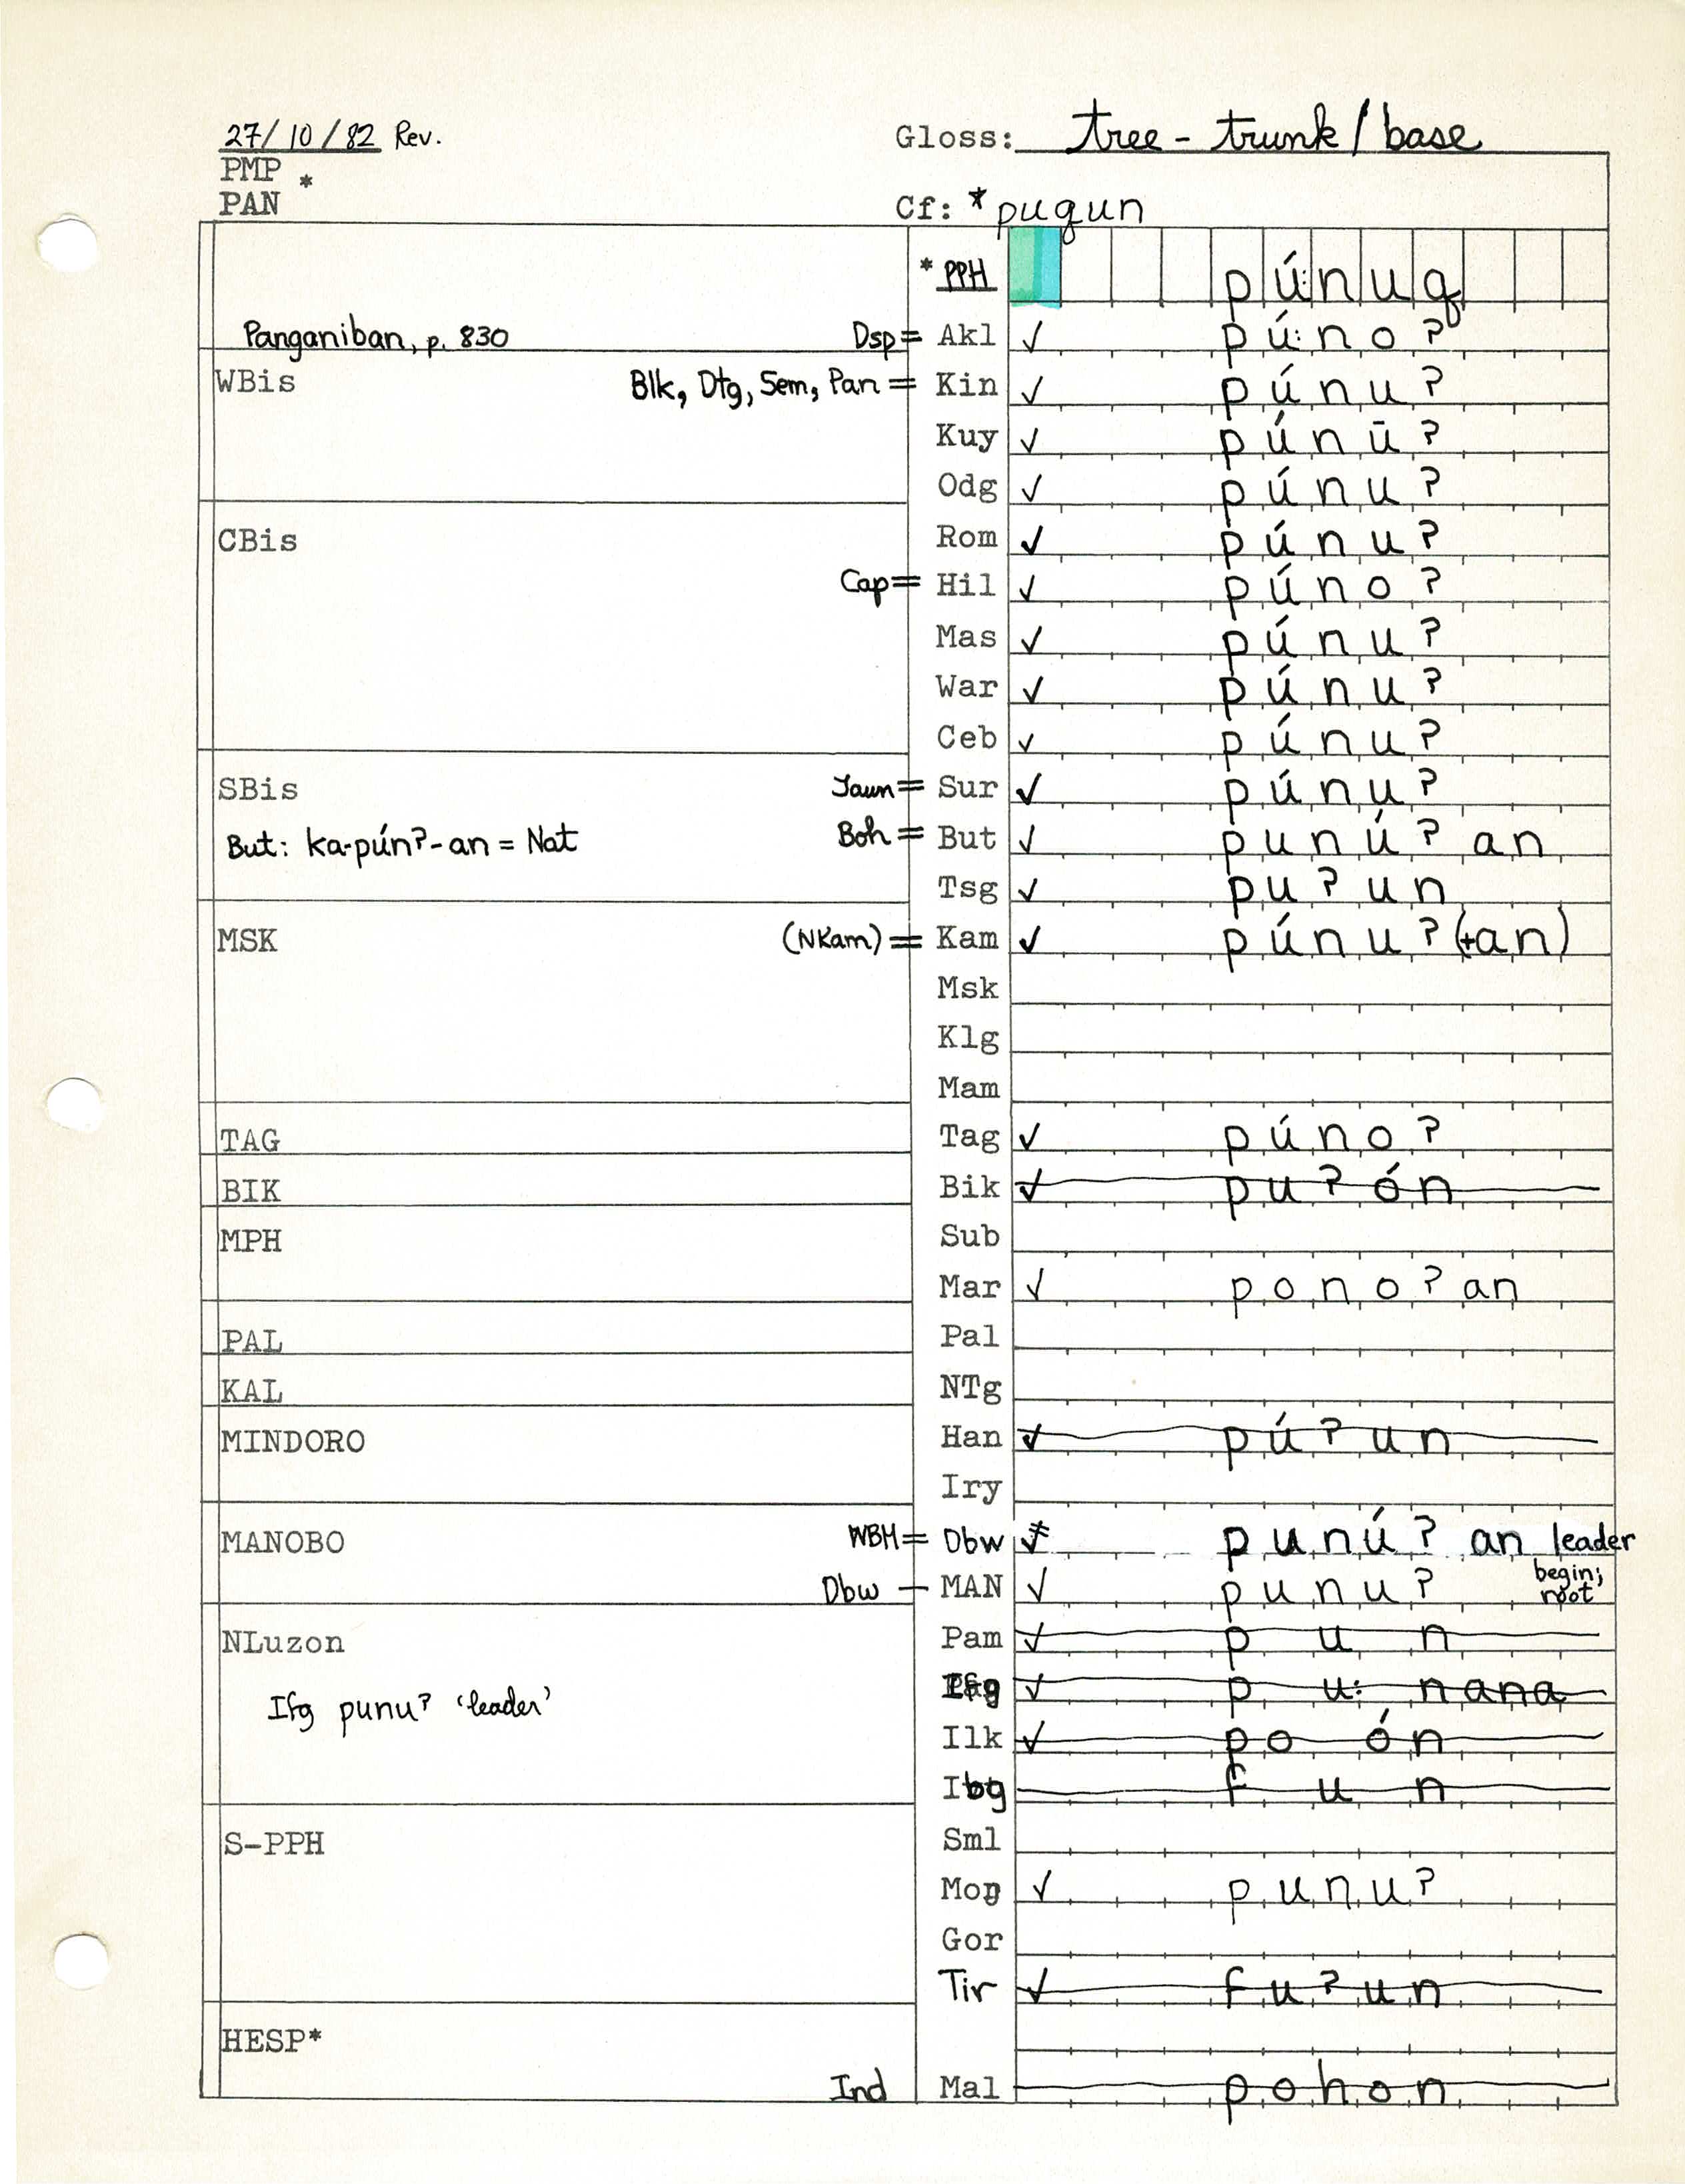 27/10/82 Rev. Gloss: tree - trunk / base
PMP *
PAN Cf: *puqun
* PPH pú:nuq
Panganiban, p. 830 Dsp = Akl ✓ pú:no?
WBis Blk, Dtg, Sem, Pan = Kin ✓ púnu?
Kuy ✓ púnū?
Odg ✓ púnu?
CBis Rom ✓ púnu?
Cap = Hil ✓ púno?
Mas ✓ púnu?
War ✓ púnu?
Ceb ✓ púnu?
SBis Jaun = Sur ✓ púnu?
But: ka-pún?-an = Nat Boh = But ✓ punú?an
Tsg ✓ pu?un
MSK (NKam) = Kam ✓ púnu?(+an)
Msk
Klg
Mam
TAG Tag ✓ púno?
BIK Bik ✓ pu?ón
MPH Sub
Mar ✓ pono?an
PAL Pal
KAL NTg
MINDORO Han ✓ pú?un
Iry
MANOBO WBM = Dbw ✓ punú?an leader
Dbw - MAN ✓ punu? begin; root
NLuzon Pam ✓ pun
Ifg punu? 'leader' Ifg ✓ pu:nana
Ilk ✓ poón
Ibg fun
S-PPH Sml
Moŋ ✓ punu?
Gor
Tir ✓ fu?un
HESP*
Ind Mal pohon